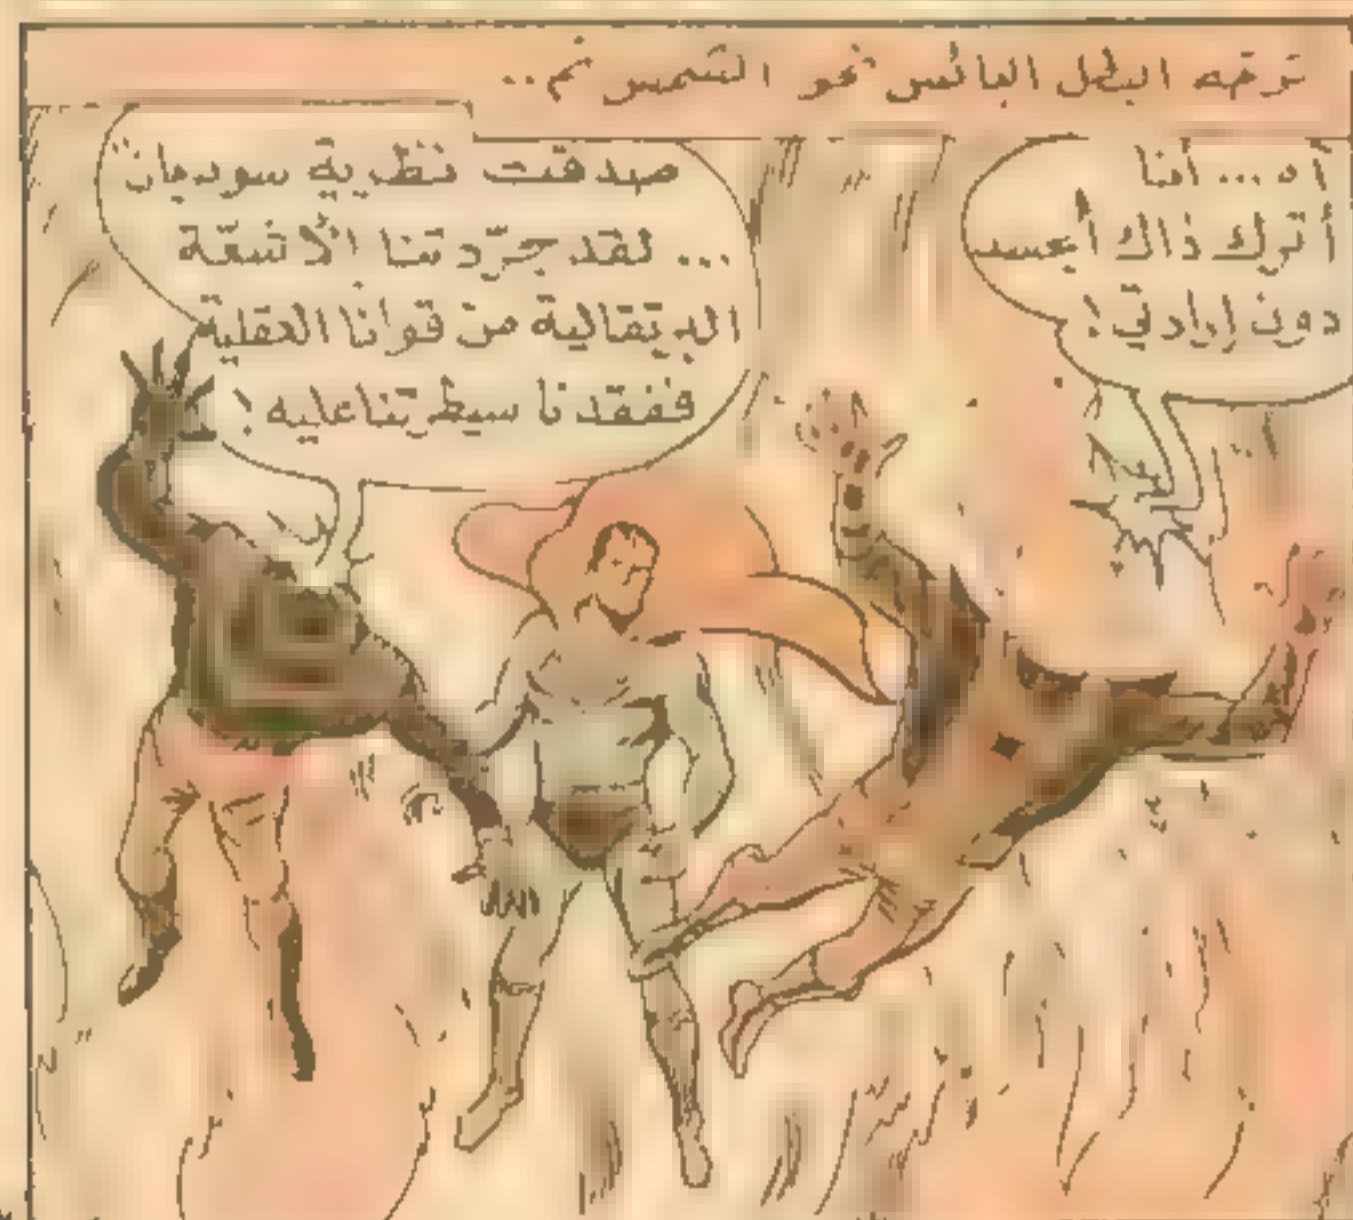 توجه البطل البائس نحو الشمس ثم..
آه... أنا
أترك ذاك الجسد
دون إرادتي!
صدقت نظرية سوبرمان
... لقد جرّدتنا الأشعّة
البرتقالية من قوانا العقلية
ففقدنا سيطرتنا عليه!